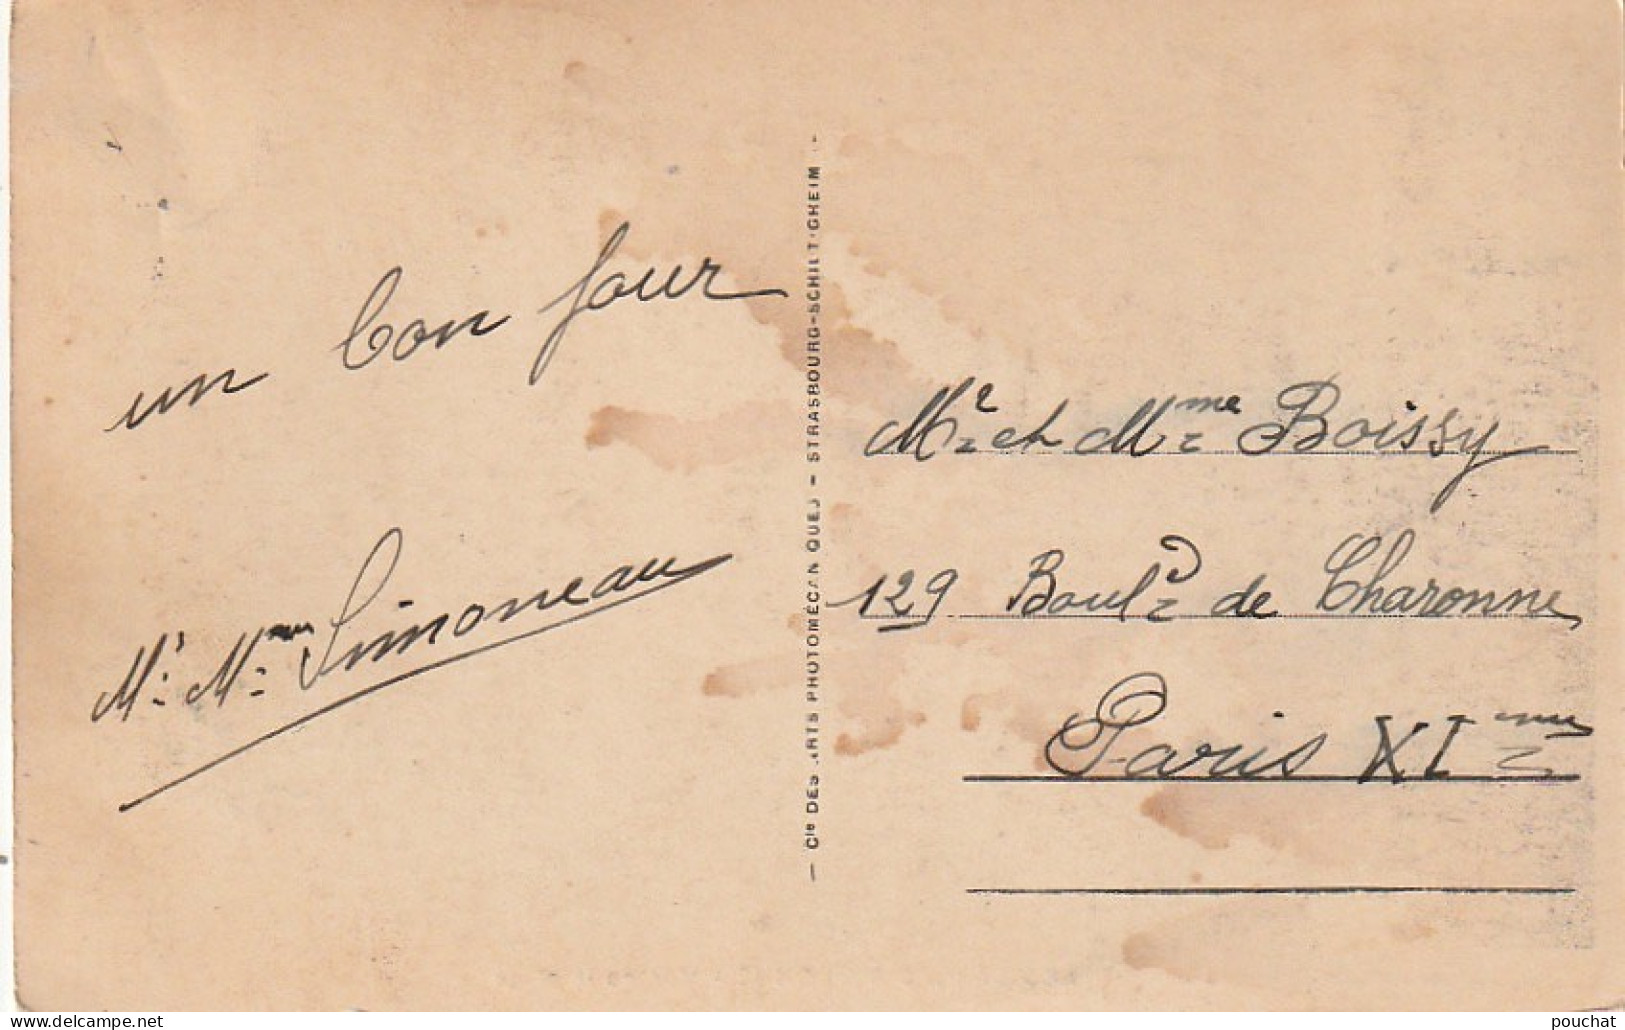 un bon jour
Mr. Mme Simoneau
— Cie DES ARTS PHOTOMÉCANIQUES — STRASBOURG-SCHILTIGHEIM —
Mr et Mme Boissy
129 Bould de Charonne
Paris XIme
www.delcampe.net
pouchat